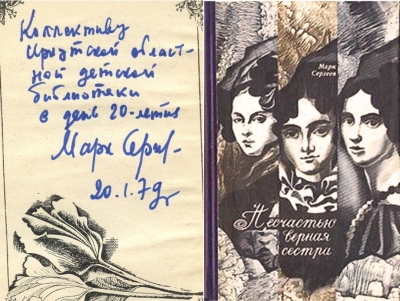 Коллективу
Иркутской област-
ной детской
библиотеки
в день 20-летия
Марк Серг
20.1.79г
Марк
Сергеев
Несчастью
верная
сестра